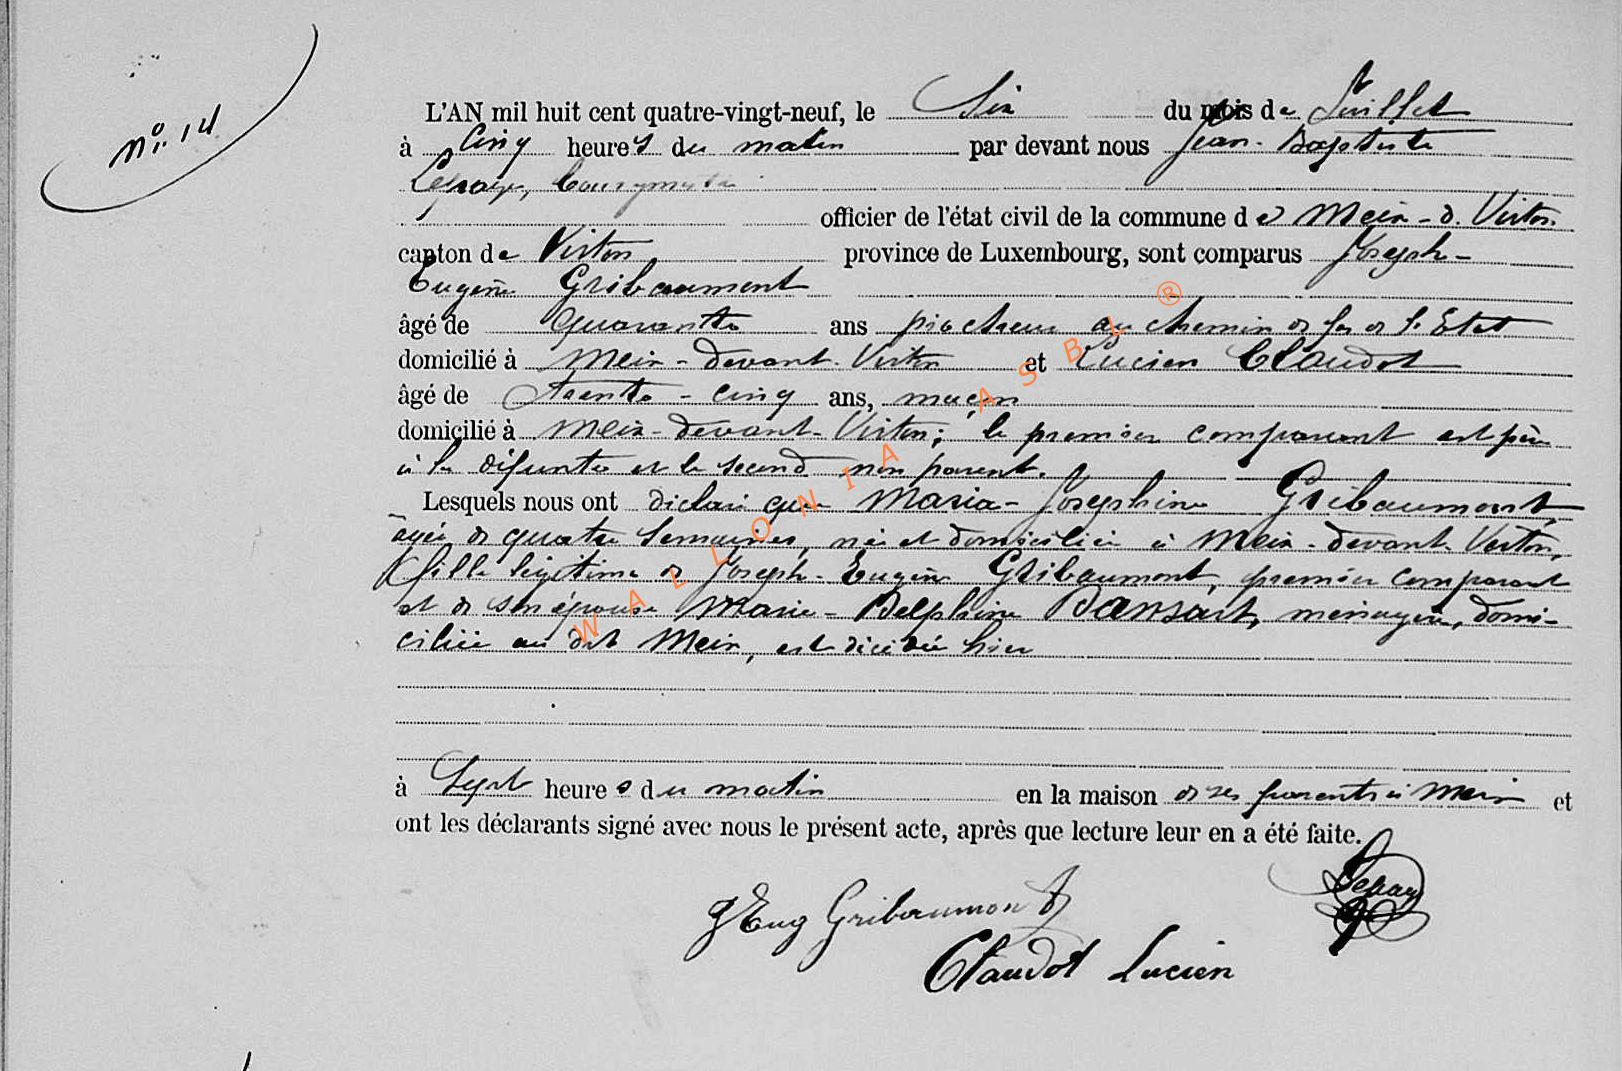 N° 14
L'AN mil huit cent quatre-vingt-neuf, le Six du mois de Juillet
à Cinq heures du matin par devant nous Jean-Baptiste
Lepage, Bourgmestre
officier de l'état civil de la commune de Meix-d. Virton
canton de Virton province de Luxembourg, sont comparus Joseph-
Eugène Gribaumont
âgé de quarante ans piocheur au chemin de fer de l'Etat
domicilié à Meix-devant-Virton et Lucien Claudot
âgé de trente-cinq ans, maçon
domicilié à Meix-devant-Virton; le premier comparant est père
à la défunte et le second non parent.
Lesquels nous ont déclaré que Maria-Joséphine Gribaumont,
âgée de quatre semaines, née et domiciliée à Meix-devant-Virton,
fille légitime de Joseph-Eugène Gribaumont, premier comparant
et de son épouse Marie-Delphine Dansart, ménagère, domi-
ciliée au dit Meix, est décédée hier
à Sept heures du matin en la maison de ses parents à Meix et
ont les déclarants signé avec nous le présent acte, après que lecture leur en a été faite.
J Eug Gribaumont
Claudot Lucien
WALLONIA ASBL ®